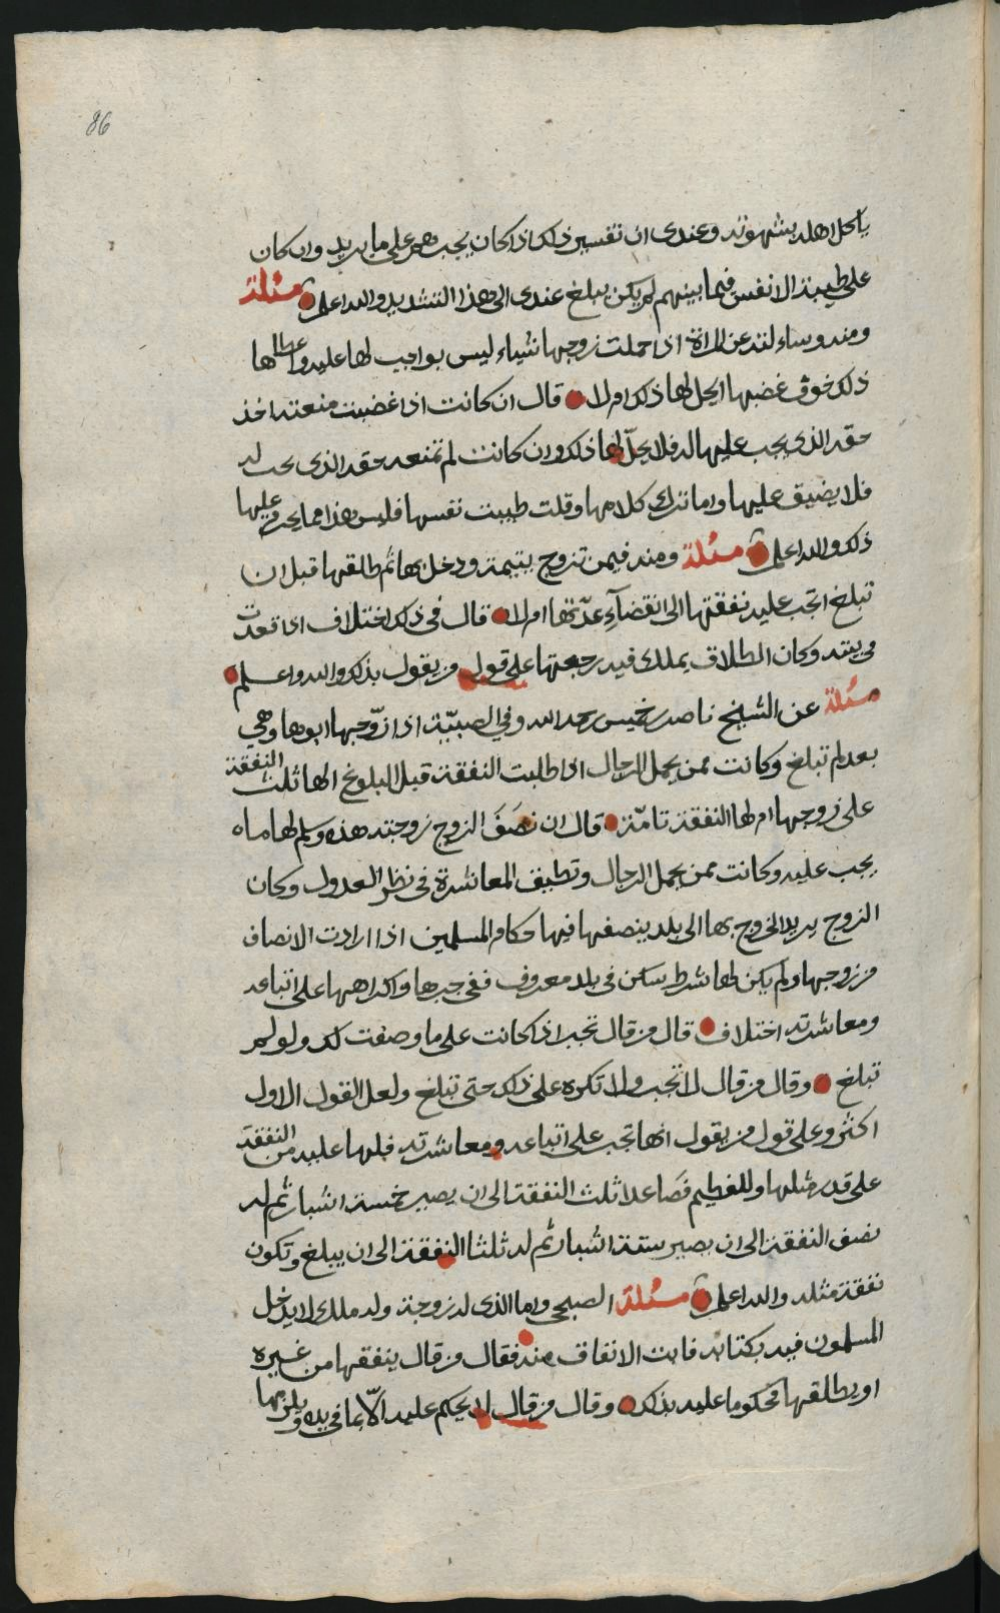 86
ياكل اهله بشهوته وعندى ان تفسير ذلك اذا كان يجبرهم على ما يريد وان كان
على طيبة الانفس فيما بينهم لم يكن يبلغ عندى الى هذا التشديد والله اعلم مسئلة
ومنه وسالته عن المراة اذا حملت زوجها شياء ليس بواجب لها عليه واعطاها
ذلك خوف غضبها ايحل لها ذلك ام لا قال ان كانت اذا غضبت منعته اخذ
حقه الذى يجب عليها له فلا يحلّ لها ذلك وان كانت لم تمنعه حقه الذى يجب له
فلا يضيق عليها واما ترك كلامها وقلت طيبت نفسها فليس هذا مما يحرم عليها
ذلك والله اعلم مسئلة ومنه فيمن تزوج يتيمة ودخل بها ثم طلقها قبل ان
تبلغ اتجب عليه نفقتها الى انقضآء عدّتها ام لا قال فى ذلك اختلاف اذا قعدت
فى بيته وكان الطلاق يملك فيه رجعتها على قول من يقول بذلك والله واعلم
مسئلة عن الشيخ ناصر بن خميس رحمه الله وفي الصبيّة اذا زوّجها ابوها وهي
بعد لم تبلغ وكانت ممن يحمل الرجال اذا طلبت النفقة قبل البلوغ الها ثلث النفقة
على زوجها ام لها النفقة تامّة قال ان نصَفَ الزوج زوجته هذه وسلم لها ماه
يجب عليه وكانت ممن يحمل الرجال وتطيق المعاشرة فى نظر العدول وكان
الزوج يريد الخروج بها الى بلد ينصفها فيها حكام المسلمين اذا ارادت الانصاف
من زوجها ولم يكن لها شرط سكن فى بلد معروف ففى جبرها واكراهها على اتباعه
ومعاشرته اختلاف قال من قال تجبر اذا كانت على ما وصفت لك ولو لم
تبلغ وقال من قال لا تجبر ولا تكره على ذلك حتى تبلغ ولعل القول الاول
اكثر وعلى قول من يقول انها تجبر على اتباعه ومعاشرته فلها عليه من النفقة
على قدر مثلها وللفطيم فصاعدا ثلث النفقة الى ان يصير خمسة اشبار ثم له
نصف النفقة الى ان يصير ستة اشبار ثم له ثلثا النفقة الى ان يبلغ وتكون
نفقة مثله والله اعلم مسئلة الصبحي واما الذى له زوجة وله ملك لا يدخل
المسلمون فيه بكتابه فابت الانفاق منه فقال من قال ينفقها من غيره
او يطلقها محكوما عليه بذلك وقال من قال لا يحكم عليه الّا بما فى يده ويلزمها